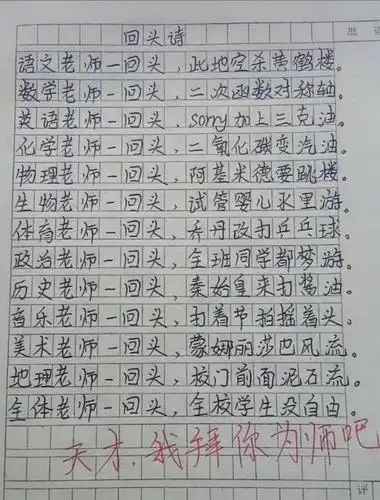 批
回头诗
语文老师一回头，此地空杀黄鹤楼。
数学老师一回头，二次函数对称轴。
英语老师一回头，sorry加上三克油。
化学老师一回头，二氧化碳变汽油。
物理老师一回头，阿基米德要跳楼。
生物老师一回头，试管婴儿水里游。
体育老师一回头，乔丹改打乒乓球。
政治老师一回头，全班同学都梦游。
历史老师一回头，秦始皇来打酱油。
音乐老师一回头，打着节拍摇着头。
美术老师一回头，蒙娜丽莎巴风流。
地理老师一回头，校门前面泥石流。
全体老师一回头，全校学生没自由。
天才，我拜你为师吧
评